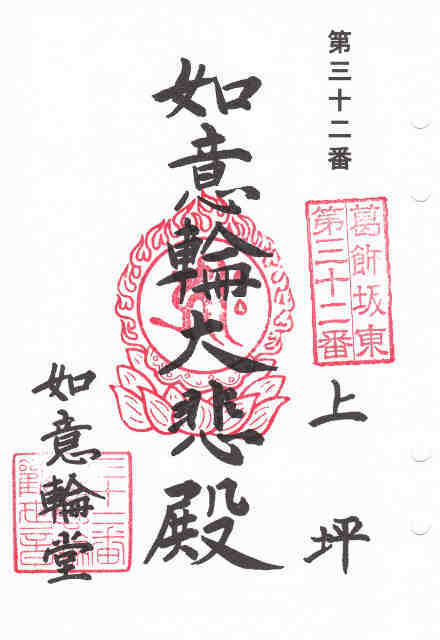 第三十二番
葛飾坂東
第三十二番
上坪
如意輪大悲殿
如意輪堂
三十二番